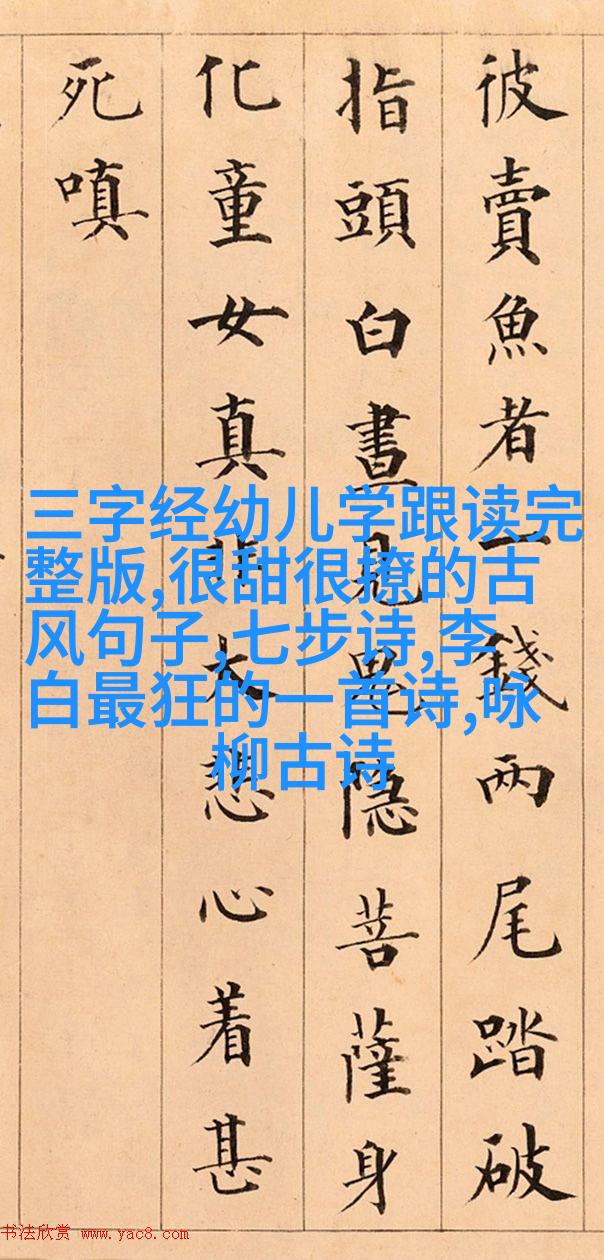 彼賣魚者一錢兩尾踏破
指頭白晝見鬼隐菩薩身
化童女真非大悲心着甚
死嗔
三字经幼儿学跟读完
整版,很甜很撩的古
风句子,七步诗,李
白最狂的一首诗,咏
柳古诗
书法欣赏 www.yac8.com